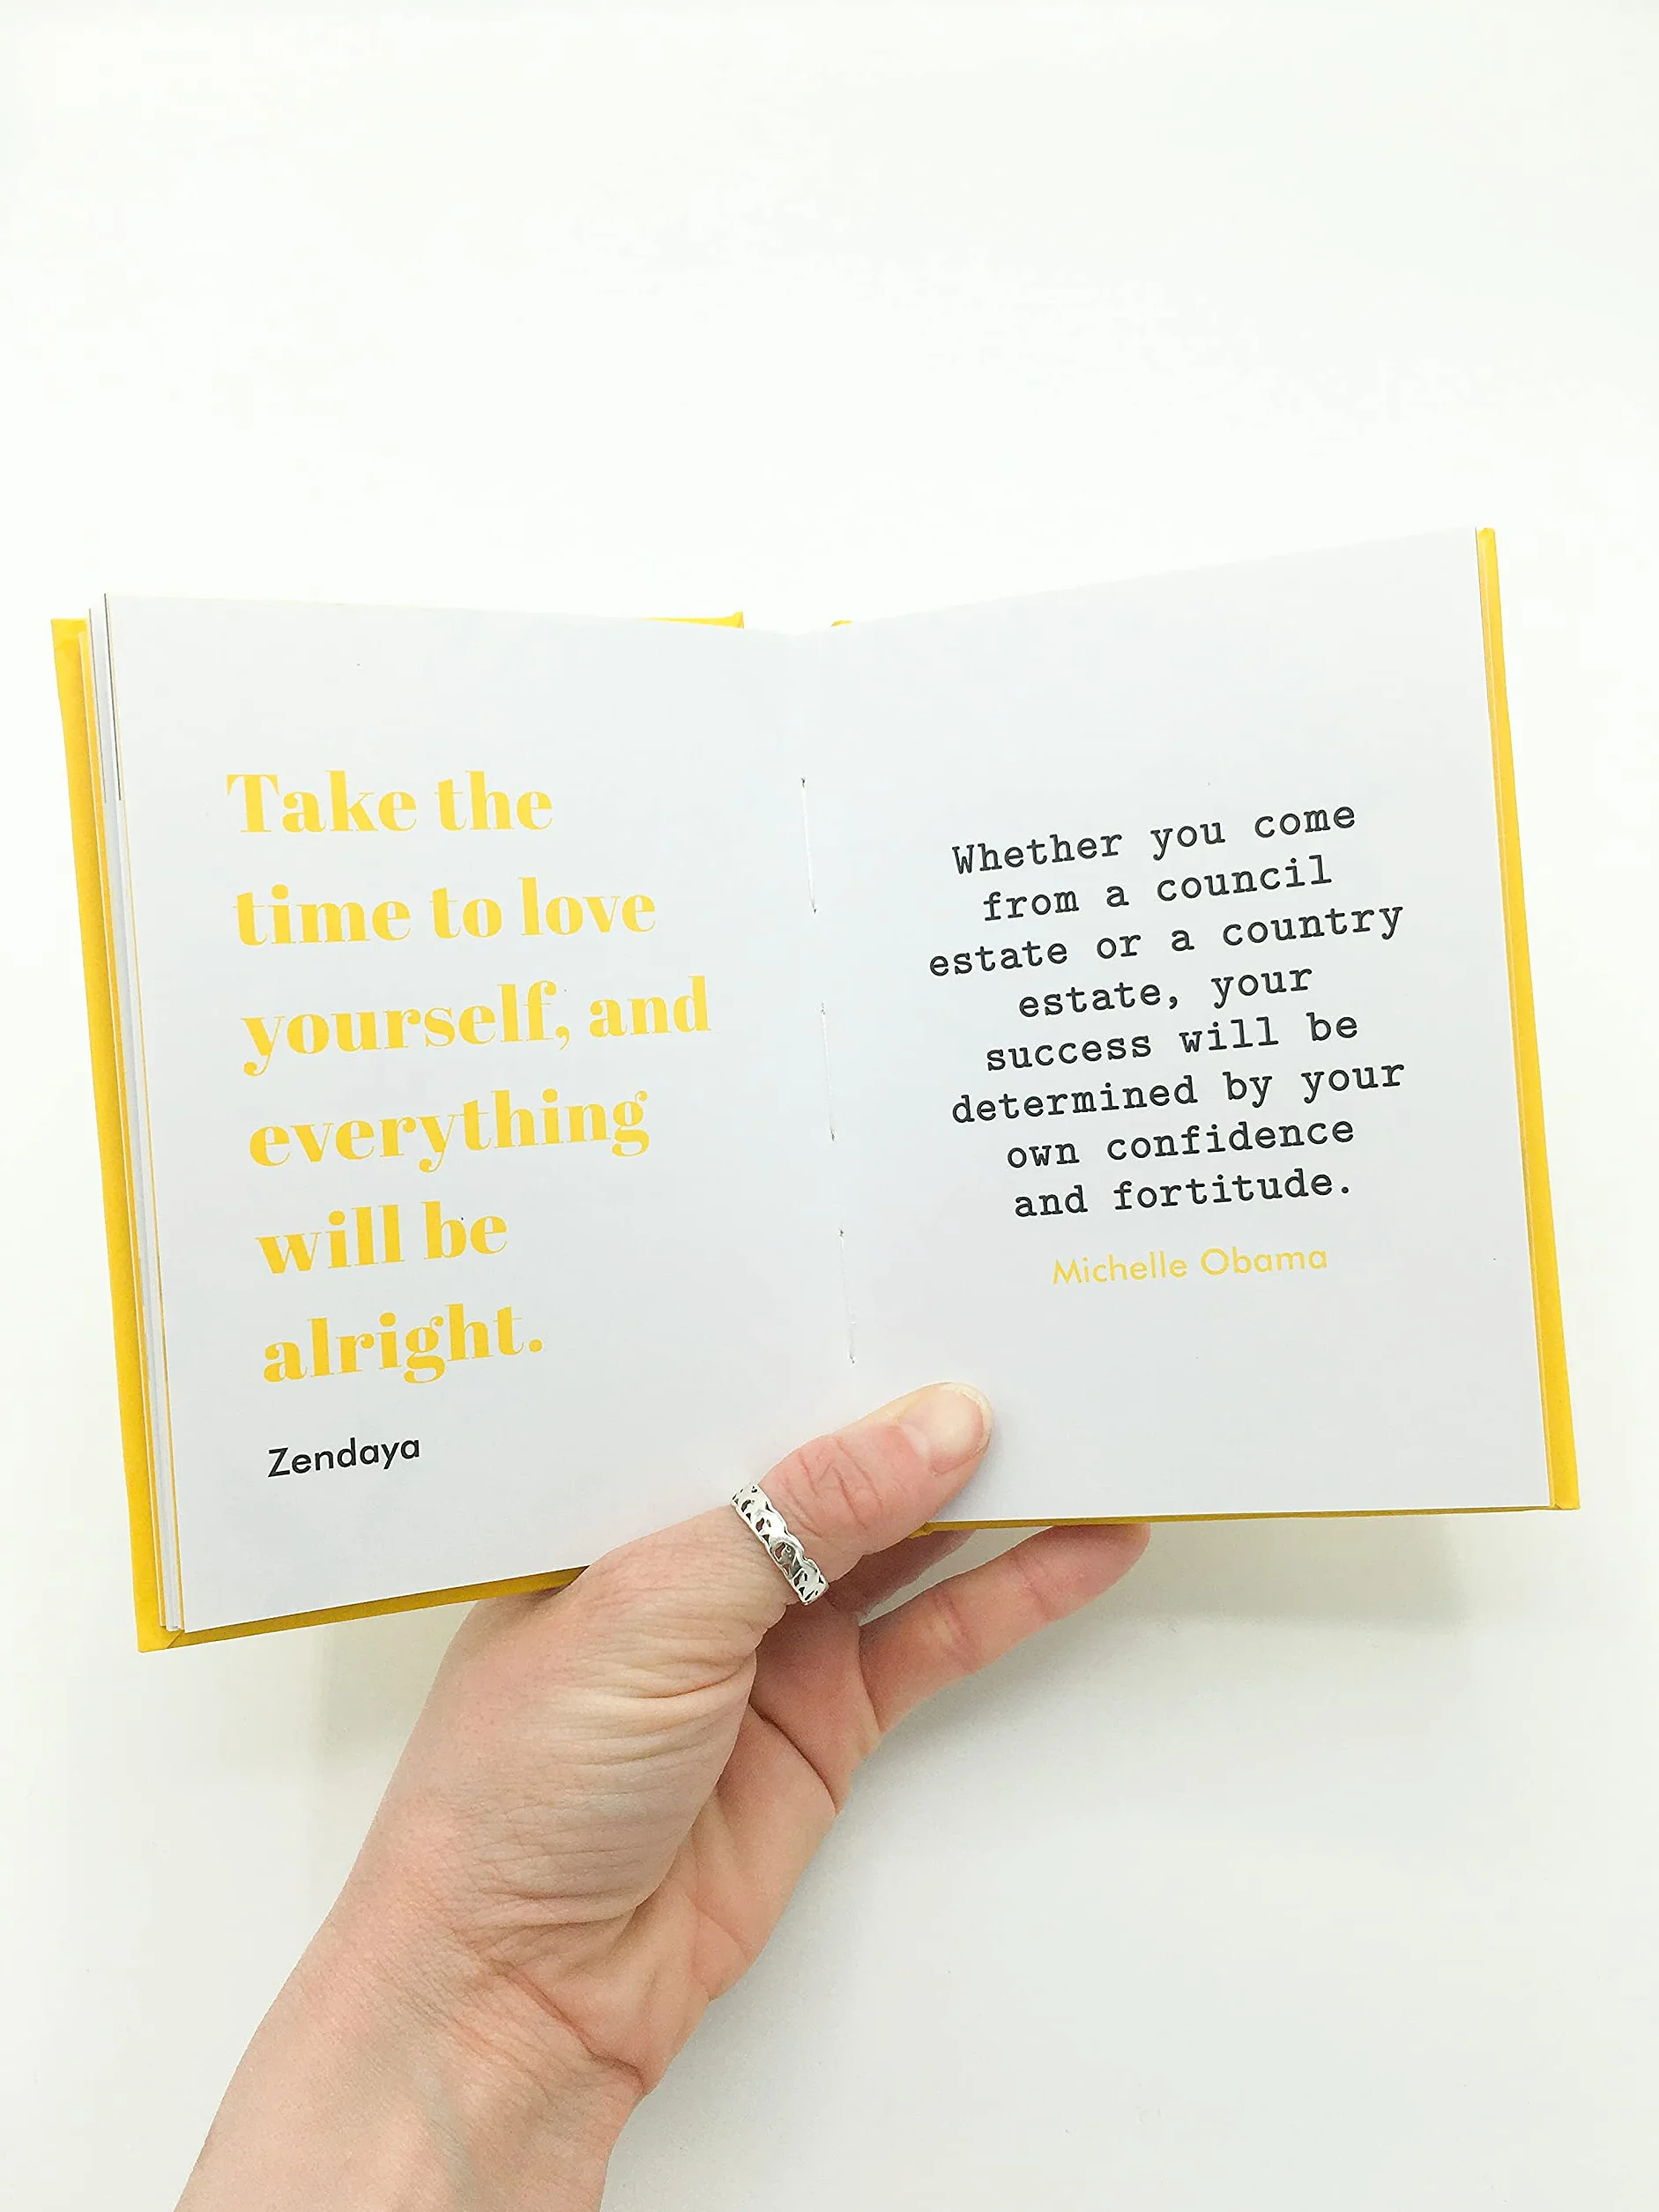 Take the
time to love
yourself, and
everything
will be
alright.
Zendaya
Whether you come
from a council
estate or a country
estate, your
success will be
determined by your
own confidence
and fortitude.
Michelle Obama